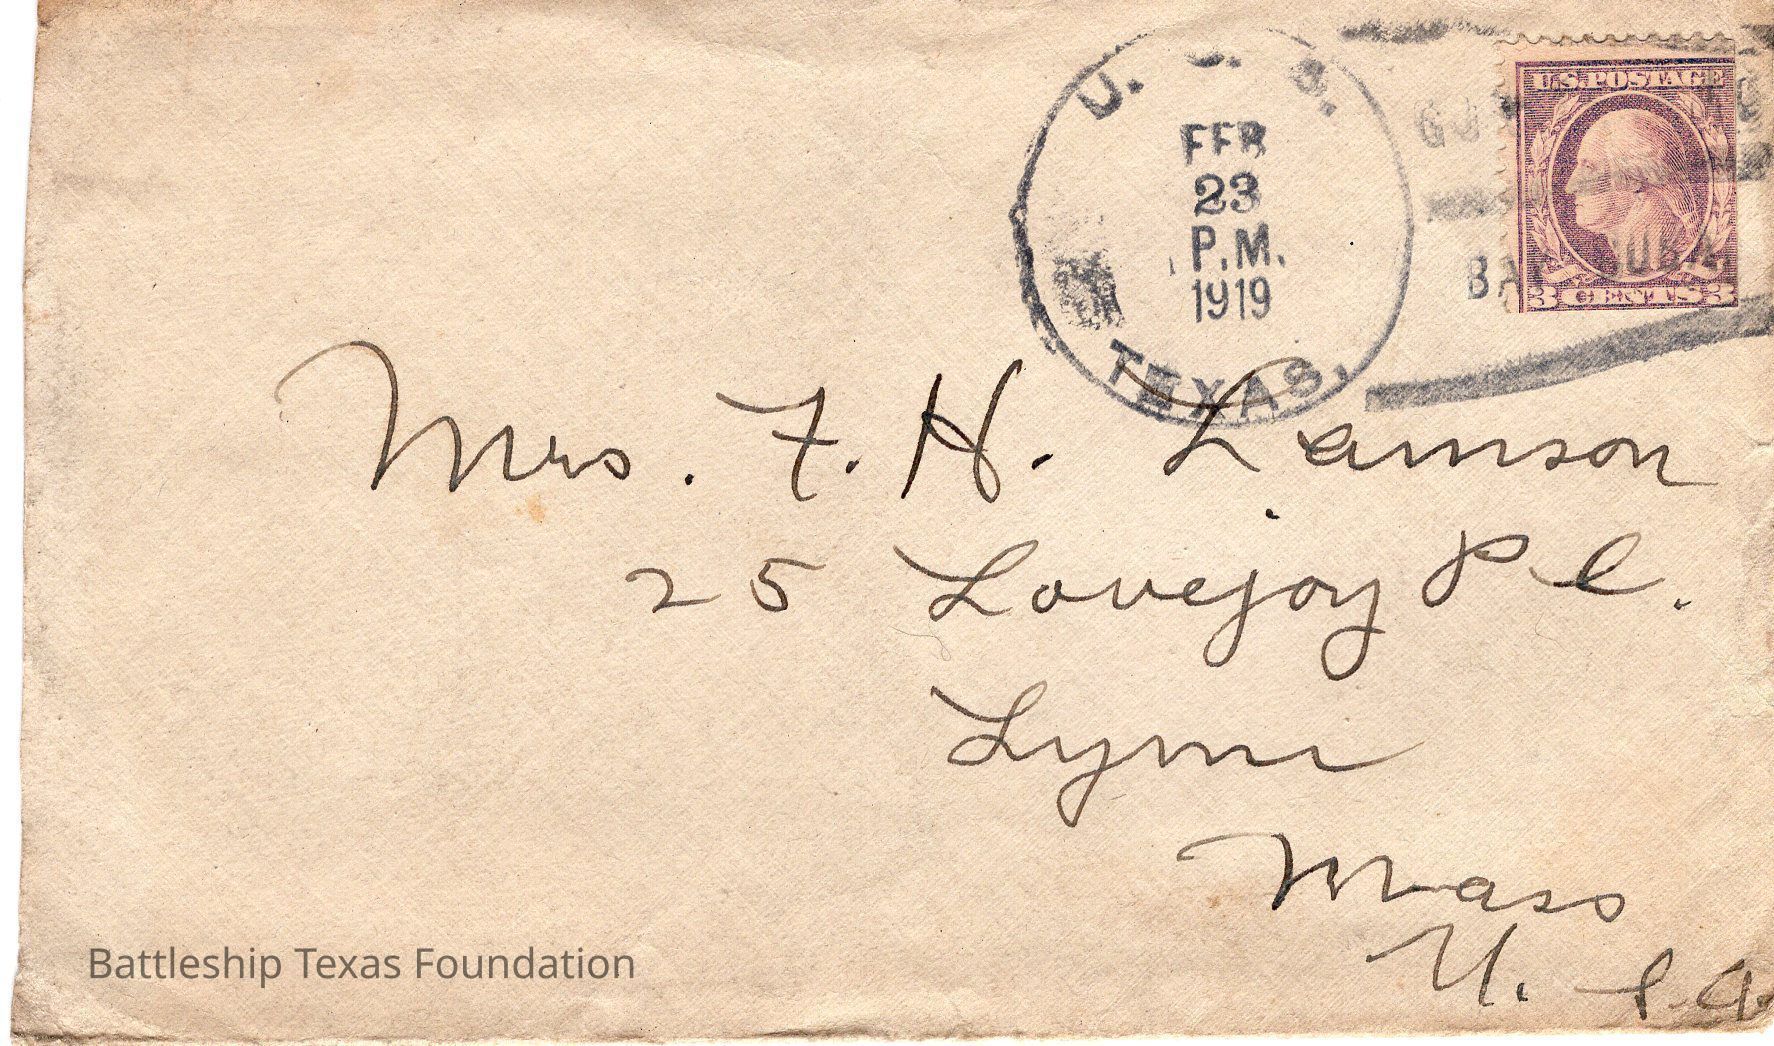 U. S. S.
FEB
23
P.M.
1919
TEXAS.
U.S. POSTAGE
BAY CUBA
3 CENTS 3
Mrs. F. H. Lamson
25 Lovejoy Pl.
Lynn
Mass
U. S. A.
Battleship Texas Foundation